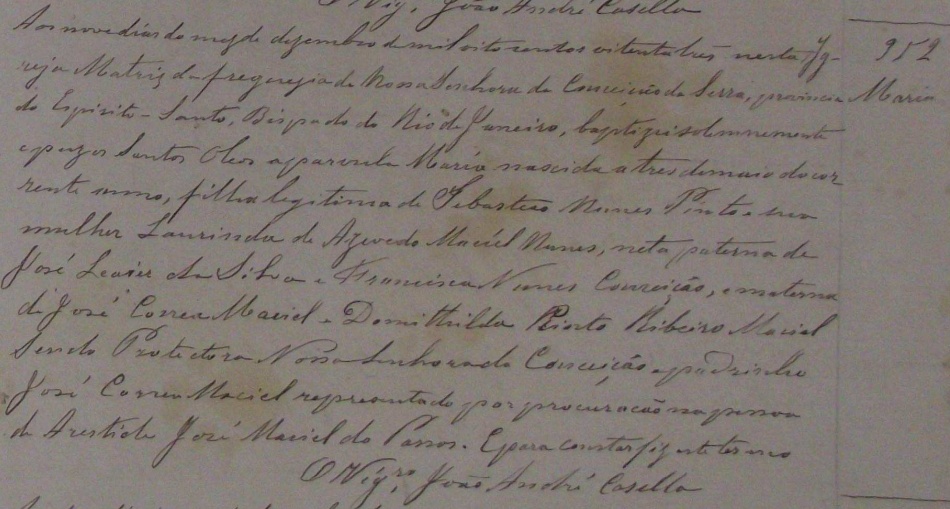 O Vigr. João André Casella
Aos nove dias do mez de dezembro de mil oito centos oitenta tres nesta Ig-
952
reja Matriz da freguezia de Nossa Senhora da Conceição da Serra, provincia
Maria
do Espirito-Santo, Bispado do Rio de Janeiro, baptizei solemnemente
e puz os Santos Oleos a parvula Maria nascida a tres de maio do cor-
rente anno, filha legitima de Sebastião Nunes Pinto e sua
mulher Laurinda de Azevedo Maciel Nunes, neta paterna de
José da Silva e Francisca Nunes Conceição, e materna
de José Correa Maciel e Domithilda Pinto Ribeiro Maciel
Sendo Protectora Nossa Senhora da Conceição e padrinho
José Correa Maciel representado por procuração na pessoa
de Aristide José Maciel do Passos. E para constar fiz este termo
O Vigro. João André Casella